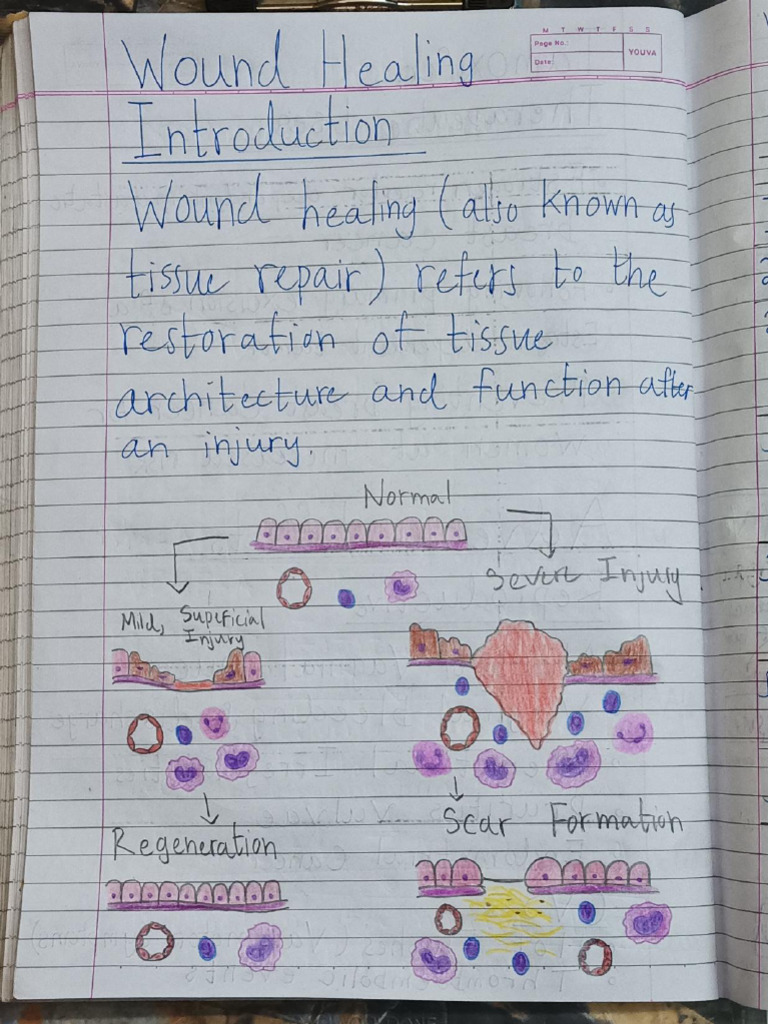 M T W T F S S
Page No.:
Date:
YOUVA
Wound Healing
Introduction
Wound healing (also known as
tissue repair) refers to the
restoration of tissue
architecture and function after
an injury.
Normal
Severe Injury
Mild, Superficial
Injury
Regeneration
Scar Formation